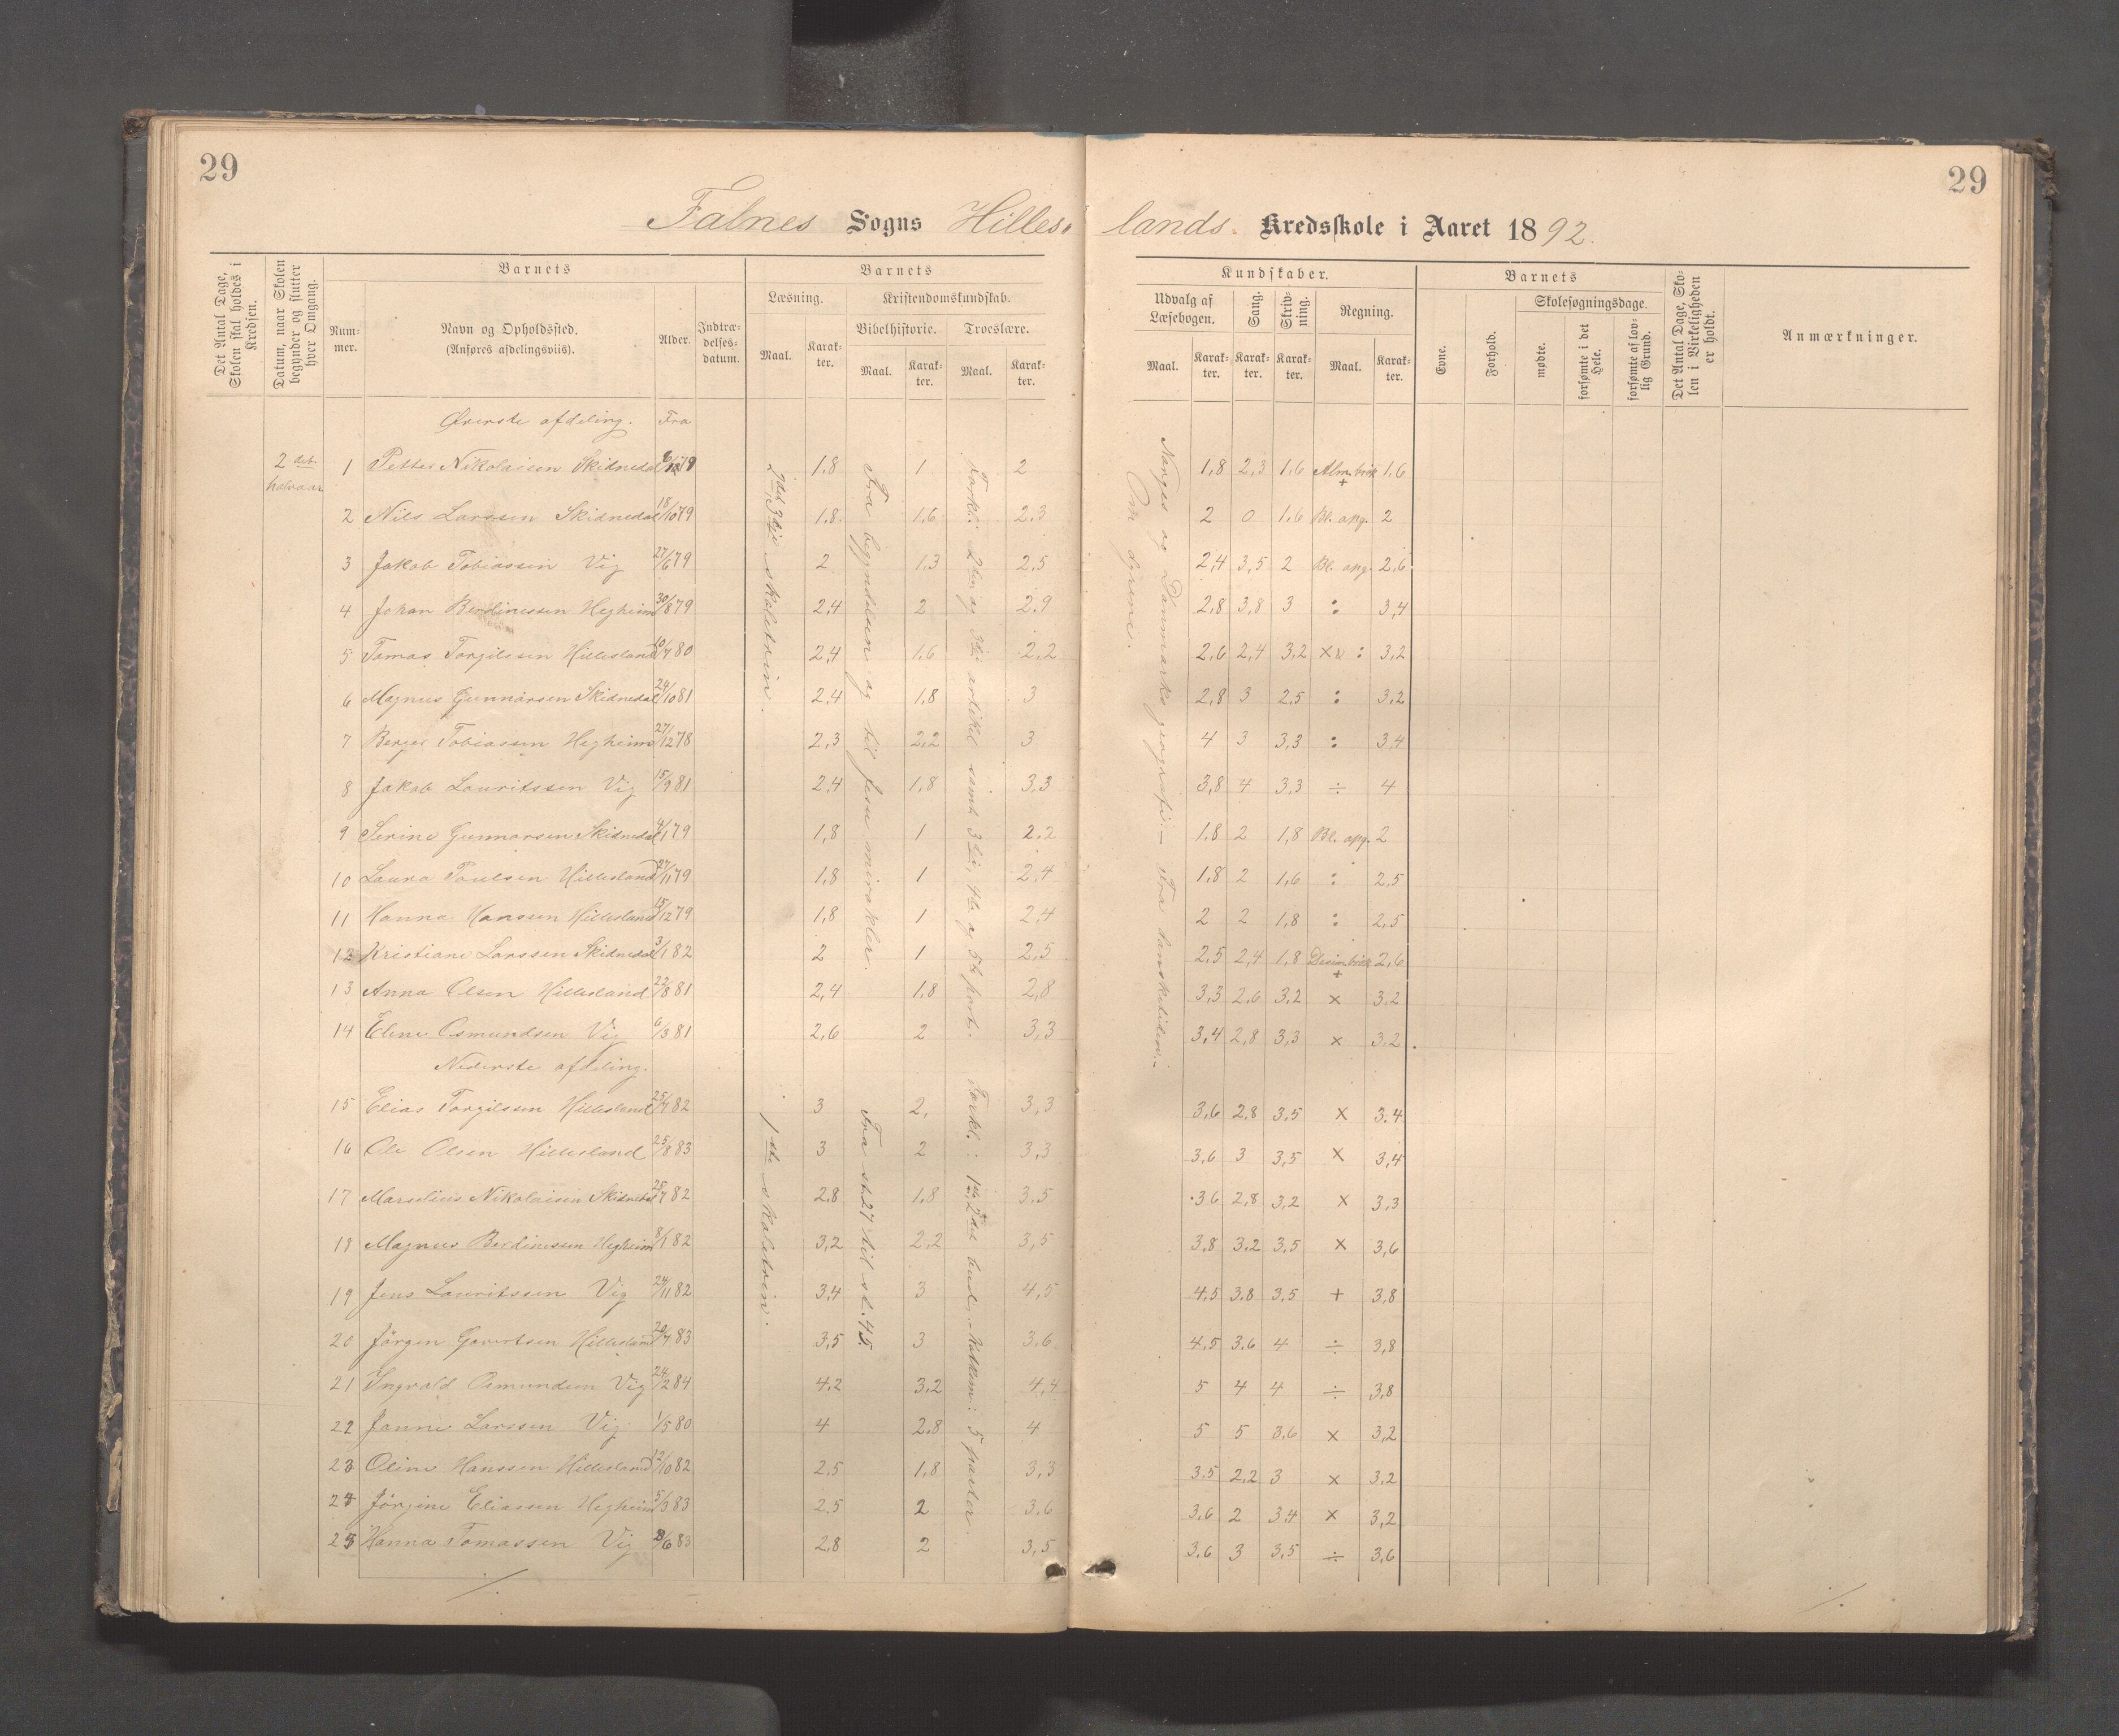 29
29
Falnes Sogns Hilles-lands Kredsskole i Aaret 1892.
Det Antal Dage, Skolen skal holdes i Kredsen.
Datum, naar Skolen begynder og slutter hver Omgang.
Barnets
Nummer.
Navn og Opholdssted. (Anføres afdelingsviis).
Alder.
Indtrædelses-datum.
Barnets
Læsning.
Maal.
Karakter.
Kristendomskundskab.
Bibelhistorie.
Maal.
Karakter.
Troeslære.
Maal.
Karakter.
Kundskaber.
Udvalg af Læsebogen.
Maal.
Karakter.
Sang.
Karakter.
Skrivning.
Karakter.
Regning.
Maal.
Karakter.
Barnets
Evne.
Forhold.
Skolesøgningsdage.
mødte.
forsømte i det Hele.
forsømte af lovlig Grund.
Det Antal Dage, Skolen i Virkeligheden er holdt.
Anmærkninger.
Øverste afdeling. Fra
2 det halvaar
1 Petter Nikolaisen Skidnedal 79 1,8 1 2 1,8 2,3 1,6 Alm. brøk + 1,6
2 Nils Larssen Skidnedal 18/10 79 1,8 1,6 2,3 2 0 1,6 Bl. opg. 2
3 Jakob Tobiassen Vig 27/6 79 2 1,3 2,5 2,4 3,5 2 Bl. opg. 2,6
4 Johan Berdinessen Hegheim 30/8 79 2,4 2 2,9 2,8 3,8 3 : 3,4
5 Tomas Torgilssen Hillesland 10/7 80 2,4 1,6 2,2 2,6 2,4 3,2 : 3,2
6 Magnus Gunnarsen Skidnedal 24/10 81 2,4 1,8 3 2,8 3 2,5 : 3,2
7 Berger Tobiassen Hegheim 27/12 78 2,3 2,2 3 4 3 3,3 : 3,4
8 Jakob Lauritssen Vig 15/9 81 2,4 1,8 3,3 3,8 4 3,3 ÷ 4
9 Serine Gunnarsen Skidnedal 4/1 79 1,8 1 2,2 1,8 2 1,8 Bl. opg. 2
10 Laura Paulsen Hillesland 27/11 79 1,8 1 2,4 1,8 2 1,6 : 2,5
11 Hanna Hanssen Hillesland 15/12 79 1,8 1 2,4 2 2 1,8 : 2,5
12 Kristiane Larssen Skidnedal 3/1 82 2 1 2,5 2,5 2,4 1,8 Desim. brøk + 2,6
13 Anna Olsen Hillesland 22/8 81 2,4 1,8 2,8 3,3 2,6 3,2 × 3,2
14 Eline Osmundsen Vig 6/3 81 2,6 2 3,3 3,4 2,8 3,3 × 3,2
Nederste afdeling.
15 Elias Torgilssen Hillesland 25/7 82 3 2, 3,3 3,6 2,8 3,5 × 3,4
16 Ole Olsen Hillesland 25/8 83 3 2 3,3 3,6 3 3,5 × 3,4
17 Marselius Nikolaisen Skidnedal 28/7 82 2,8 1,8 3,5 3,6 2,8 3,2 × 3,3
18 Magnus Berdinessen Hegheim 8/1 82 3,2 2,2 3,5 3,8 3,2 3,5 × 3,6
19 Jens Lauritssen Vig 24/11 82 3,4 3 4,5 4,5 3,8 3,5 + 3,8
20 Jörgen Govertsen Hillesland 20/7 83 3,5 3 3,6 4,5 3,6 4 ÷ 3,8
21 Ingvald Osmundsen Vig 24/2 84 4,2 3,2 4,4 5 4 4 ÷ 3,8
22 Janne Larssen Vig 1/5 80 4 2,8 4 5 5 3,6 × 3,2
23 Oline Hanssen Hillesland 12/10 82 2,5 1,8 3,3 3,5 2,2 3 × 3,2
24 Jörgine Eliassen Hegheim 5/3 83 2,5 2 3,6 3,6 2 3,4 × 3,2
25 Hanna Tomassen Vig 83 2,8 2 3,5 3,6 3 3,5 ÷ 3,6
2det, 3dje skoletrin.
Fra begyndelsen og til Jesu mirakler.
Forkl.: 2den og 3die artikel samt 3die, 4de og 5te part.
Norges og Danmarks geografi. — Fra
Om dyrene.
1ste skoletrin.
Fra st. 27 til st. 45.
Forkl.: 1ste, 2det bud. - Katekism: 5 parter.